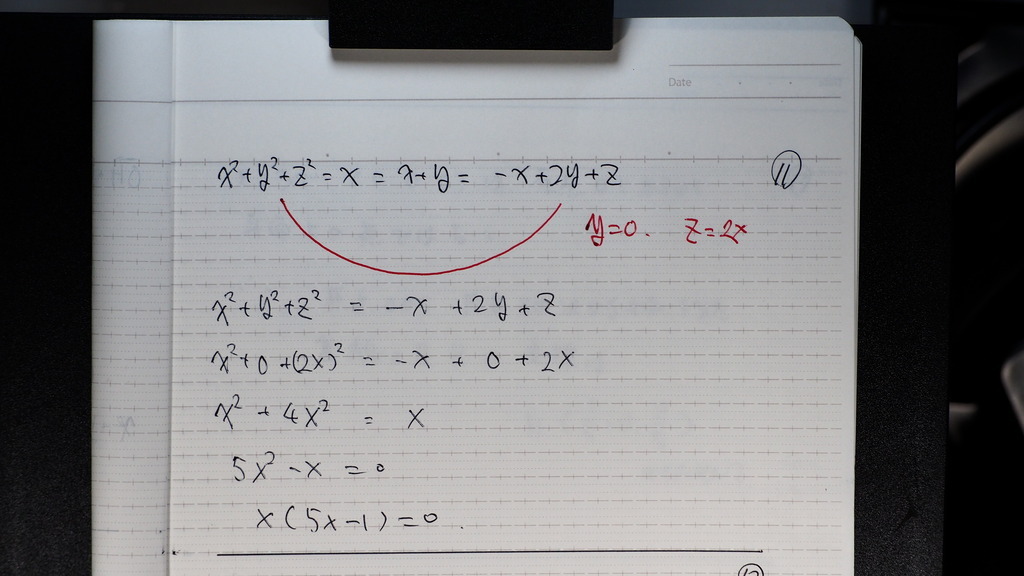 Date
x²+y²+z² = x = x+y = -x+2y+z ⑪
y=0. z=2x
x²+y²+z² = -x +2y+z
x²+0+(2x)² = -x + 0 + 2x
x² + 4x² = x
5x² - x = 0
x(5x-1)=0.